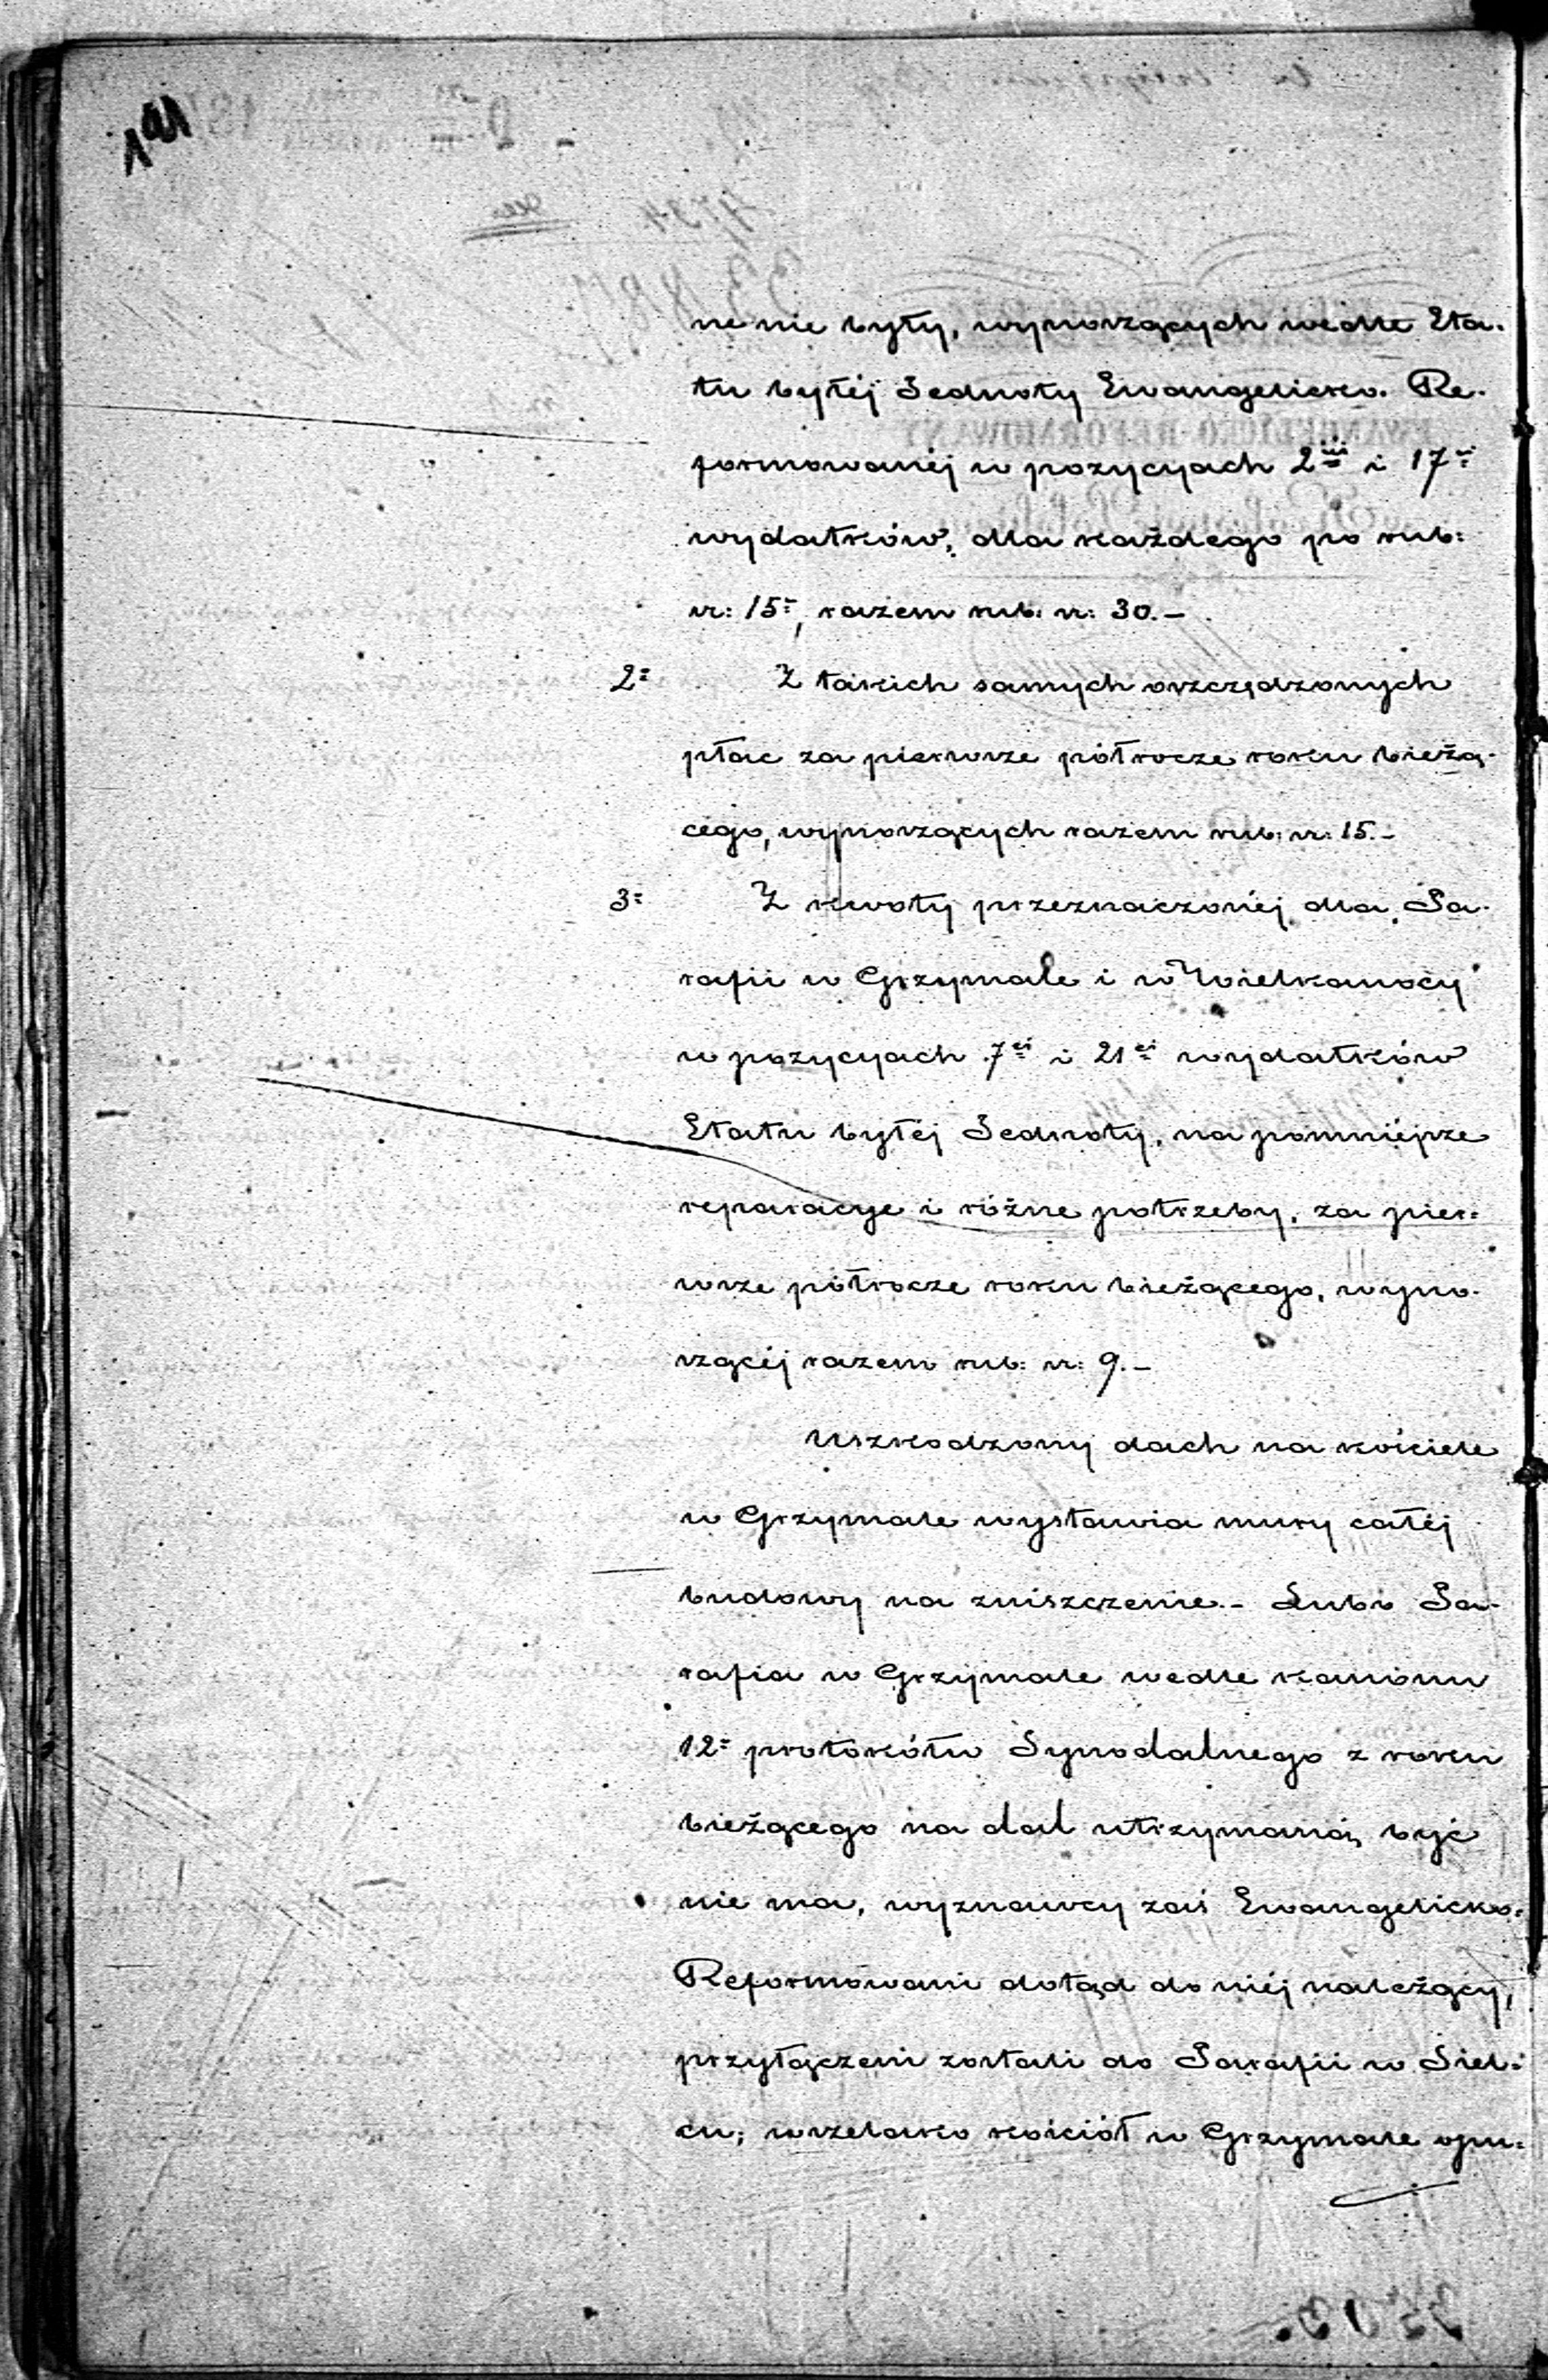 191
ne nie były, wynoszących wedle Eta-
tu byłéj Jednoty Ewangelicko-Re-
formowanéj w pozycyach 2iéj i 17éj
wydatków, dla każdego po rub:
sr: 15=, razem rub: sr: 30.-
2= Z takich samych oszczędzonych
płac za pierwsze półrocze roku bieżą-
cego, wynoszących razem rub: sr: 15.-
3= Z kwoty przeznaczonéj dla Pa-
rafii w Grzymale i w Wielkanocy
w pozycyach 7éj i 21éj wydatków
Etatu byłéj Jednoty, na pomniejsze
reparacye i różne potrzeby, za pier-
wsze półrocze roku bieżącego, wyno-
szącéj razem rub: sr: 9.-
Uszkodzony dach na kościele
w Grzymale wystawia mury całéj
budowy na zniszczenie.- Lubo Pa-
rafia w Grzymale wedle kanonu
12= protokółu Synodalnego z roku
bieżącego na dal utrzymaną być
nie ma, wyznawcy zaś Ewangelicko-
Reformowani dotąd do niéj należący,
przyłączeni zostali do Parafii w Siel-
cu; wszelako kościół w Grzymale opu-